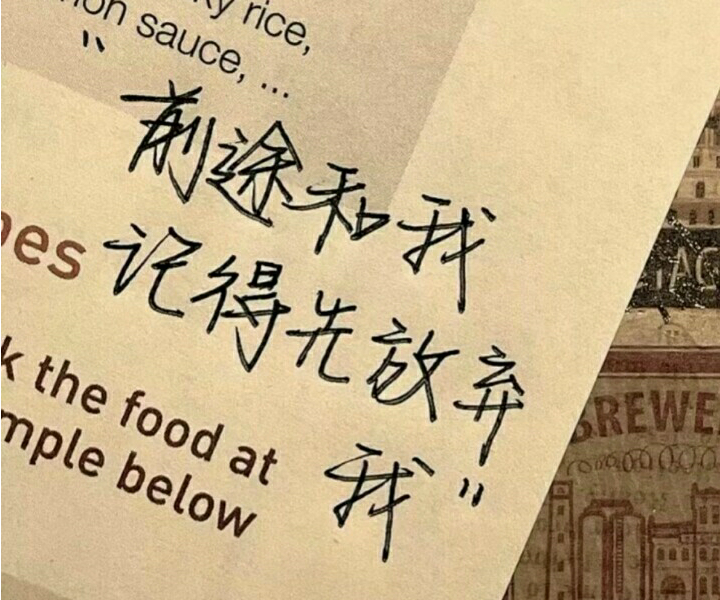 ky rice,
on sauce, ...
"前途和我
记得先放弃
我"
es
k the food at
mple below
BREWE